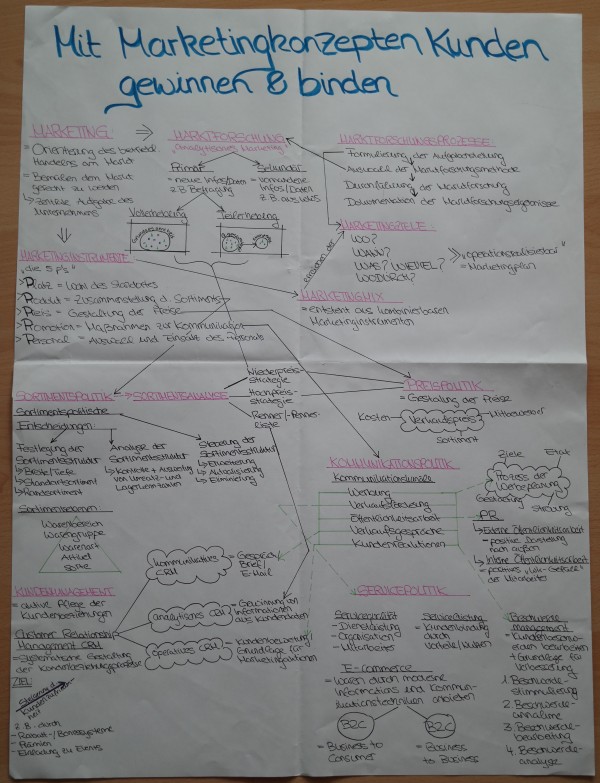 Mit Marketingkonzepten Kunden
gewinnen & binden
MARKETING
= Orientierung des betriebl.
Handelns am Markt
= Bemühen dem Markt
gerecht zu werden
↳ zentrale Aufgabe des
Unternehmens
MARKTFORSCHUNG
"analytisches Marketing"
Primär
= neue Infos/Daten
z.B. Befragung
Sekundär
= vorhandene
Infos/Daten
Vollerhebung
Teilerhebung
MARKTFORSCHUNGSPROZESSE
Formulierung der Aufgabenstellung
Auswahl der Marktforschungsmethode
Durchführung der Marktforschung
Dokumentation der Marktforschungsergebnisse
MARKETINGZIELE
WO?
WANN?
WAS? WIEVIEL?
WODURCH?
= Marketingplan
MARKETINGINSTRUMENTE
"die 5 P's"
Platz = Wahl des Standortes
Produkt = Zusammenstellung d. Sortiments
Preis = Gestaltung der Preise
Promotion = Maßnahmen zur Kommunikation
Personal = Auswahl und Einsatz des Personals
MARKETINGMIX
= entsteht aus kombinierbaren
Marketinginstrumenten
SORTIMENTSPOLITIK
SORTIMENTSANALYSE
Niedrigpreis-
strategie
Hochpreis-
strategie
Renner-/Penner-
liste
PREISPOLITIK
= Gestaltung der Preise
Kosten
Verkaufspreis
Mitbewerber
Sortiment
Sortimentspolitische
Entscheidungen
Festlegung der
Sortimentsstruktur
↳ Breite/Tiefe
↳ Standardsortiment
↳ Randsortiment
Analyse der
Sortimentsstruktur
↳ Kontrolle + Auswertung
von Umsatz- und
Lagerkennzahlen
Steuerung der
Sortimentsstruktur
↳ Erweiterung
↳ Eliminierung
Sortimentsebenen
Warenbereich
Warengruppe
Warenart
Artikel
Sorte
KOMMUNIKATIONSPOLITIK
Kommunikationskanäle
Werbung
Verkaufsförderung
Öffentlichkeitsarbeit
Verkaufsgespräche
Kundenreaktionen
Ziele
Etat
Prozess der
Werbeplanung
Gestaltung
Streuung
PR
↳ Externe Öffentlichkeitsarbeit
= positive Darstellung
nach außen
↳ Interne Öffentlichkeitsarbeit
= positives "Wir-Gefühl"
der Mitarbeiter
KUNDENMANAGEMENT
= aktive Pflege der
Kundenbeziehungen
Customer Relationship
Management CRM
= Systematische Gestaltung
der Kundenbeziehungsprozesse
ZIEL:
z.B. durch
- Rabatt-/Bonussysteme
- Prämien
- Einladung zu Events
kommunikatives
CRM
= Gespräch/
Brief/
E-Mail
analytisches CRM
= Gewinnung von
Informationen
aus Kundendaten
operatives CRM
= Kundenbewertung
Grundlage für
Marketingaktionen
SERVICEPOLITIK
Servicequalität
- Dienstleistung
- Organisation
- Mitarbeiter
Serviceleistung
= Kundenbindung
durch
Vorteile/Nutzen
E-Commerce
= Waren durch moderne
Informations und Kommuni-
kationstechniken anbieten
B2C
= Business to
Consumer
B2C
= Business
to Business
Beschwerde-
management
1. Beschwerde-
stimulierung
2. Beschwerde-
annahme
3. Beschwerde-
bearbeitung
4. Beschwerde-
analyse